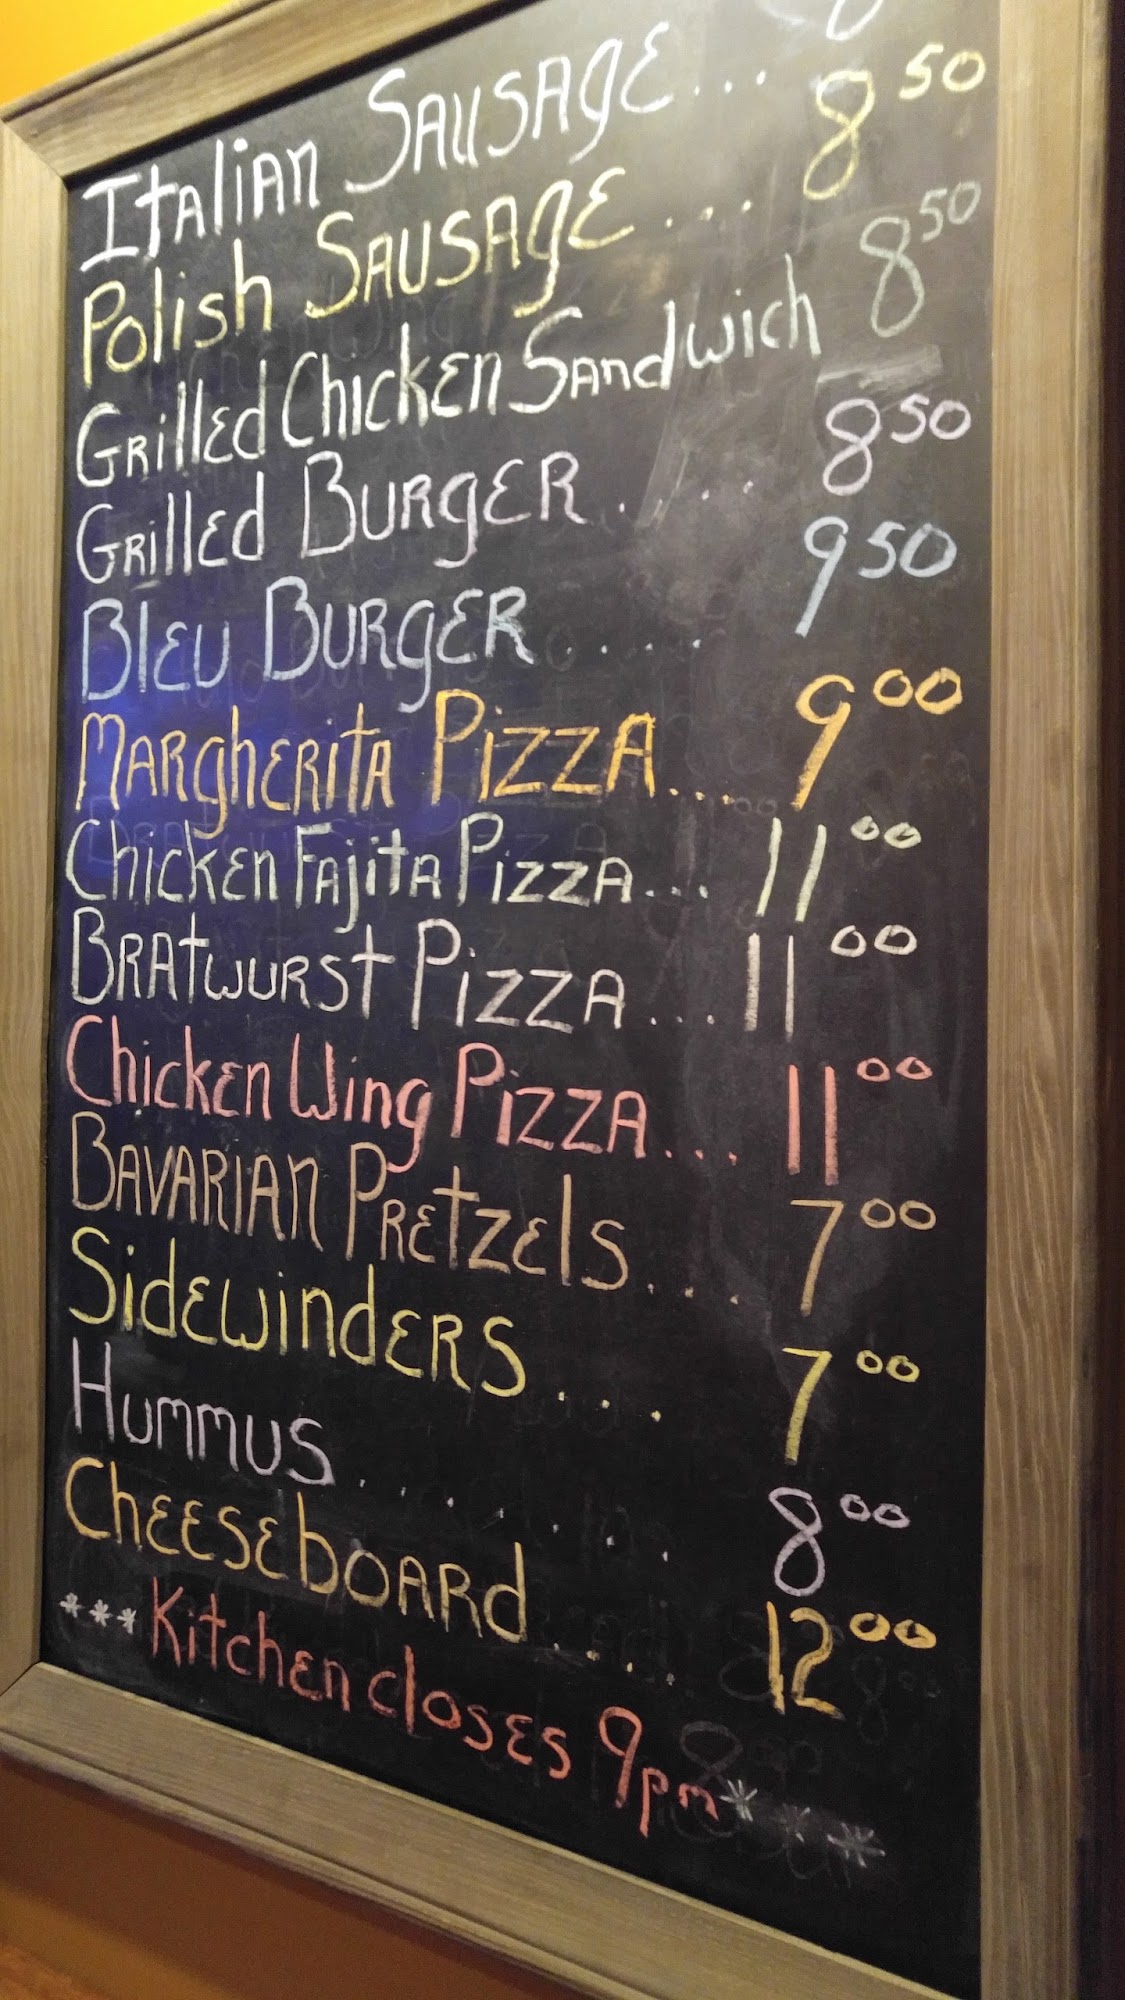 Italian Sausage... 8
Polish Sausage.... 8 50
Grilled Chicken Sandwich 8 50
Grilled Burger..... 8 50
Bleu Burger..... 9 50
Margherita Pizza... 9 00
Chicken Fajita Pizza... 11 00
Bratwurst Pizza... 11 00
Chicken Wing Pizza... 11 00
Bavarian Pretzels.... 7 00
Sidewinders... 7 00
Hummus........ 8 00
Cheeseboard..... 12 00
***Kitchen closes 9pm***